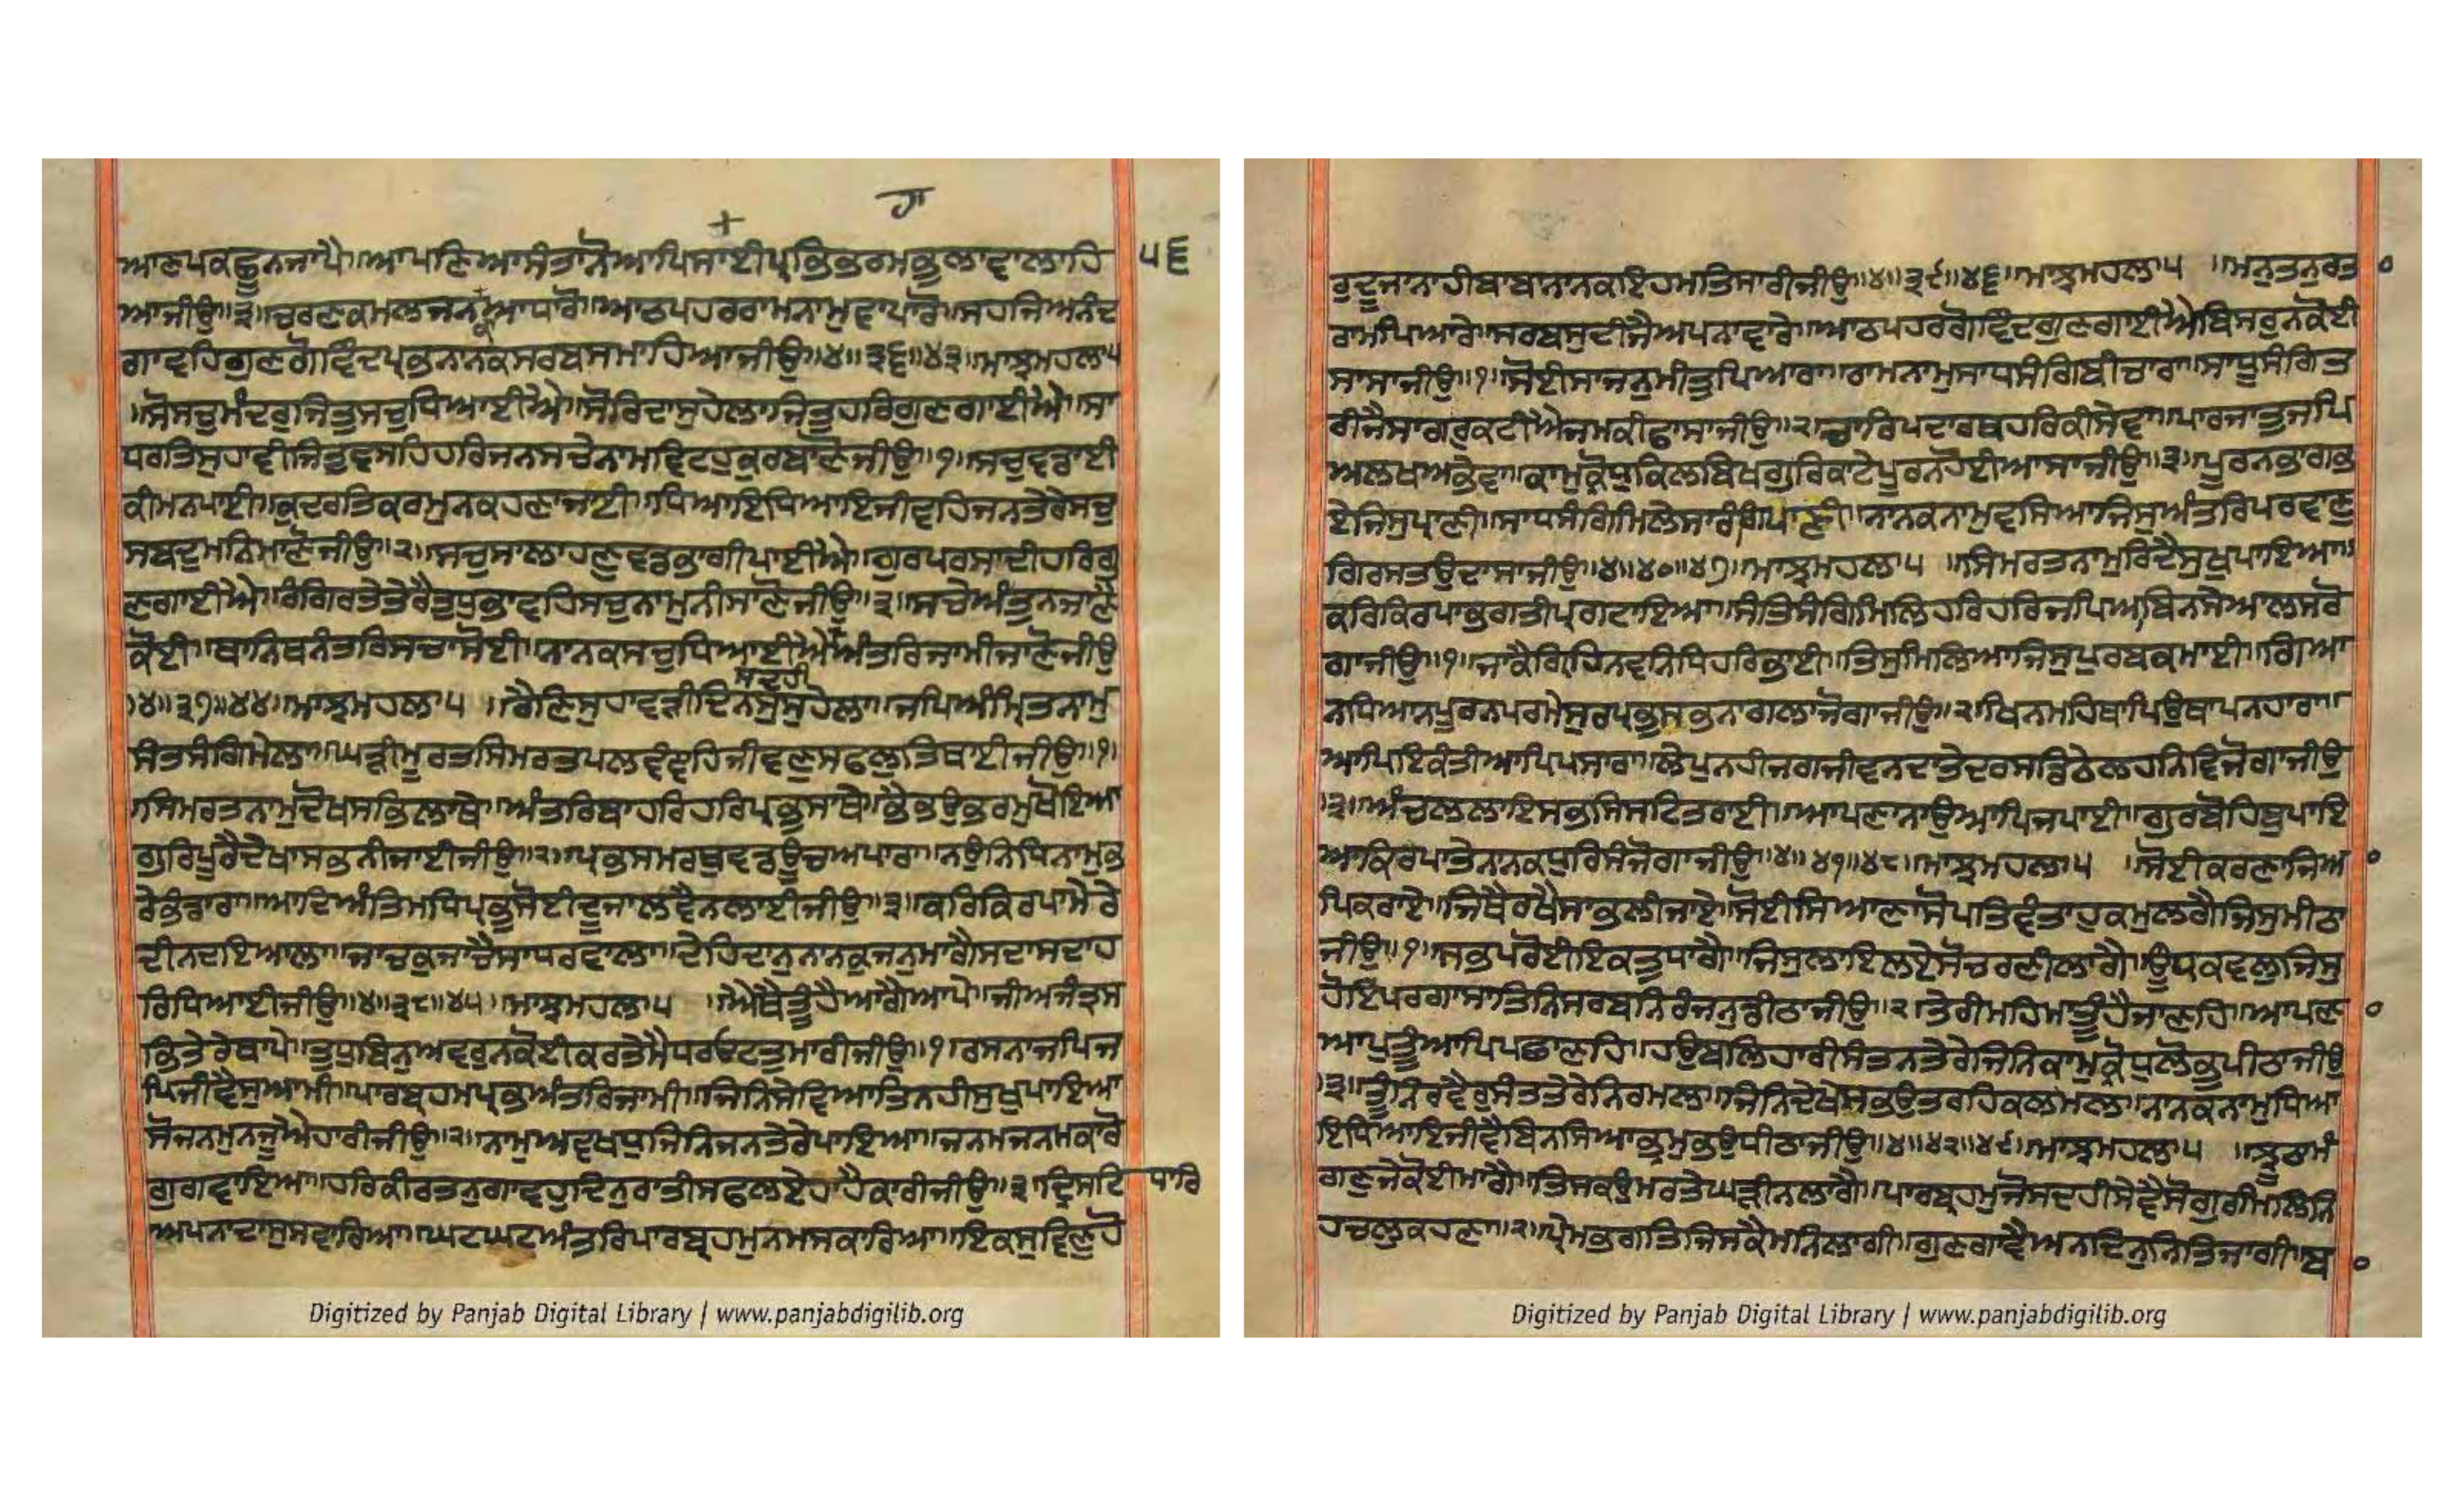 ਹਾ
੫੬
ਆਣਪਕਛੂਨਜਾਪੈ॥ਆਪਣਿਆਸੰਤਾਨੋਆਪਿਸਾਈਪ੍ਰਭਿਭਰਮਭੁਲਾਵਾਲਾਹਿ
ਆਜੀਉ॥੩॥ਚਰਣਕਮਲਜਨਕਾਆਧਾਰੋ॥ਆਠਪਹਰਰਾਮਨਾਮੁਵਾਪਾਰੋ॥ਸਹਜਿਅਨੰਦ
ਗਾਵਹਿਗੁਣਗੋਵਿੰਦਪ੍ਰਭਨਾਨਕਸਰਬਸਮਾਹਿਆਜੀਉ॥੪॥੩੬॥੪੩॥ਮਾਝਮਹਲਾ੫
॥ਸੋਸਚੁਮੰਦਰੁਜਿਤੁਸਚੁਧਿਆਈਐ॥ਸੋਰਿਦਾਸੁਹੇਲਾਜਿਤੁਹਰਿਗੁਣਗਾਈਐ॥ਸਾ
ਧਰਤਿਸੁਹਾਵੀਜਿਤੁਵਸਹਿਹਰਿਜਨਸਚੇਨਾਮਵਿਟਹੁਕੁਰਬਾਣੋਜੀਉ॥੧॥ਸਚੁਵਡਾਈ
ਕੀਮਨਪਾਈ॥ਕੁਦਰਤਿਕਰਮੁਨਕਹਣਾਜਾਈ॥ਧਿਆਇਧਿਆਇਜੀਵਹਿਜਨਤੇਰੇਸਚੁ
ਸਬਦੁਮਨਿਮਾਣੋਜੀਉ॥੨॥ਸਚੁਸਾਲਾਹਣੁਵਡਭਾਗੀਪਾਈਐ॥ਗੁਰਪਰਸਾਦੀਹਰਿਗੁ
ਣਗਾਈਐ॥ਰੰਗਿਰਤੇਤੇਰੈਤੁਧੁਭਾਵਹਿਸਚੁਨਾਮੁਨੀਸਾਣੋਜੀਉ॥੩॥ਸਚੇਅੰਤੁਨਜਾਣੈ
ਕੋਈ॥ਥਾਨਿਥਨੰਤਰਿਸਚਾਸੋਈ॥ਨਾਨਕਸਚੁਧਿਆਈਐਅੰਤਰਿਜਾਮੀਜਾਣੋਜੀਉ
ਸਦਹੀ
॥੪॥੩੭॥੪੪॥ਮਾਝਮਹਲਾ੫ ॥ਰੈਣਿਸੁਹਾਵੜੀਦਿਨਸੁਸੁਹੇਲਾ॥ਜਪਿਅੰਮ੍ਰਿਤਨਾਮੁ
ਸੰਤਸੰਗਿਮੇਲਾ॥ਘੜੀਮੂਰਤਸਿਮਰਤਪਲਵੰਞਹਿਜੀਵਣੁਸਫਲੁਤਿਥਾਈਜੀਉ॥੧॥
॥ਸਿਮਰਤਨਾਮੁਦੋਖਸਭਿਲਾਥੇ॥ਅੰਤਰਿਬਾਹਰਿਹਰਿਪ੍ਰਭੁਸਾਥੇ॥ਭੈਭਉਭਰਮੁਖੋਇਆ
ਗੁਰਿਪੂਰੈਦੇਖਾਸਭਨੀਜਾਈਜੀਉ॥੨॥ਪ੍ਰਭਸਮਰਥੁਵਡਊਚਅਪਾਰਾ॥ਨਉਨਿਧਿਨਾਮੁਭ
ਰੇਭੰਡਾਰਾ॥ਆਦਿਅੰਤਿਮਧਿਪ੍ਰਭੁਸੋਈਦੂਜਾਲਵੈਨਲਾਈਜੀਉ॥੩॥ਕਰਿਕਿਰਪਾਮੇਰੇ
ਦੀਨਦਇਆਲਾ॥ਜਾਚਕੁਜਾਚੈਸਾਧਰਵਾਲਾ॥ਦੇਹਿਦਾਨੁਨਾਨਕੁਜਨੁਮਾਗੈਸਦਾਸਦਾਹ
ਰਿਧਿਆਈਜੀਉ॥੪॥੩੮॥੪੫॥ਮਾਝਮਹਲਾ੫ ॥ਐਥੈਤੂੰਹੈਆਗੈਆਪੇ॥ਜੀਅਜੰਤ੍ਰਸ
ਭਿਤੇਰੇਥਾਪੇ॥ਤੁਧੁਬਿਨੁਅਵਰੁਨਕੋਈਕਰਤੇਮੈਧਰਓਟਤੁਮਾਰੀਜੀਉ॥੧॥ਰਸਨਾਜਪਿਜ
ਪਿਜੀਵੈਸੁਆਮੀ॥ਪਾਰਬ੍ਰਹਮਪ੍ਰਭਅੰਤਰਿਜਾਮੀ॥ਜਿਨਿਸੇਵਿਆਤਿਨਹੀਸੁਖੁਪਾਇਆ
ਸੋਜਨਮੁਨਜੂਐਹਾਰੀਜੀਉ॥੨॥ਨਾਮੁਅਵਖਧੁਜਿਨਿਜਨਤੇਰੇਪਾਇਆ॥ਜਨਮਜਨਮਕਾਰੋ
ਗੁਗਵਾਇਆ॥ਹਰਿਕੀਰਤਨੁਗਾਵਹੁਦਿਨੁਰਾਤੀਸਫਲਏਹਾਹੈਕਾਰੀਜੀਉ॥੩॥ਦ੍ਰਿਸਟਿ ਧਾਰਿ
ਅਪਨਾਦਾਸੁਸਵਾਰਿਆ॥ਘਟਘਟਅੰਤਰਿਪਾਰਬ੍ਰਹਮੁਨਮਸਕਾਰਿਆ॥ਇਕਸੁਵਿਣੁਹੋ
Digitized by Panjab Digital Library | www.panjabdigilib.org
ਰੁਦੂਜਾਨਾਹੀਬਾਬਾਨਾਨਕਇਹਮਤਿਸਾਰੀਜੀਉ॥੪॥੩੯॥੪੬॥ਮਾਝਮਹਲਾ੫ ॥ਮਨੁਤਨੁਰਤਾ
ਰਾਮਪਿਆਰੇ॥ਸਰਬਸੁਦੀਜੈਅਪਨਾਵਾਰੇ॥ਆਠਪਹਰਗੋਵਿੰਦਗੁਣਗਾਈਐਬਿਸਰੁਨਕੋਈ
ਸਾਸਾਜੀਉ॥੧॥ਸੋਈਸਾਜਨੁਮੀਤੁਪਿਆਰਾ॥ਰਾਮਨਾਮੁਸਾਧਸੰਗਿਬੀਚਾਰਾ॥ਸਾਧੂਸੰਗਿਤ
ਰੀਜੈਸਾਗਰੁਕਟੀਐਜਮਕੀਫਾਸਾਜੀਉ॥੨॥ਚਾਰਿਪਦਾਰਥਹਰਿਕੀਸੇਵਾ॥ਪਾਰਜਾਤੁਜਪਿ
ਅਲਖਅਭੇਵਾ॥ਕਾਮੁਕ੍ਰੋਧੁਕਿਲਬਿਖਗੁਰਿਕਾਟੇਪੂਰਨਹੋਈਆਸਾਜੀਉ॥੩॥ਪੂਰਨਭਾਗਭ
ਏਜਿਸੁਪ੍ਰਾਣੀ॥ਸਾਧਸੰਗਿਮਿਲੇਸਾਰੰਗਪਾਣੀ॥ਨਾਨਕਨਾਮੁਵਸਿਆਜਿਸੁਅੰਤਰਿਪਰਵਾਣੁ
ਗਿਰਸਤਉਦਾਸਾਜੀਉ॥੪॥੪੦॥੪੭॥ਮਾਝਮਹਲਾ੫ ॥ਸਿਮਰਤਨਾਮੁਰਿਦੈਸੁਖੁਪਾਇਆ॥
ਕਰਿਕਿਰਪਾਭਗਤੀਪ੍ਰਗਟਾਇਆ॥ਸੰਤਿਸੰਗਿਮਿਲਿਹਰਿਹਰਿਜਪਿਆਬਿਨਸੇਆਲਸਰੋ
ਗਾਜੀਉ॥੧॥ਜਾਕੈਗ੍ਰਿਹਿਨਵਨਿਧਿਹਰਿਭਾਈ॥ਤਿਸੁਮਿਲਿਆਜਿਸੁਪੁਰਬਕਮਾਈ॥ਗਿਆ
ਨਧਿਆਨਪੂਰਨਪਰਮੇਸੁਰਪ੍ਰਭੁਸਭਨਾਗਲਾਜੋਗਾਜੀਉ॥੨॥ਖਿਨਮਹਿਥਾਪਿਉਥਾਪਨਹਾਰਾ॥
ਆਪਿਇਕੰਤੀਆਪਿਪਸਾਰਾ॥ਲੇਪੁਨਹੀਜਗਜੀਵਨਦਾਤੇਦਰਸਡਿਠੇਲਹਨਿਵਿਜੋਗਾਜੀਉ
॥੩॥ਅੰਚਲਲਾਇਸਭਸਿਸਟਿਤਰਾਈ॥ਆਪਣਾਨਾਉਆਪਿਜਪਾਈ॥ਗੁਰਬੋਹਿਥੁਪਾਇ
ਆਕਿਰਪਾਤੇਨਾਨਕਧੁਰਿਸੰਜੋਗਾਜੀਉ॥੪॥੪੧॥੪੮॥ਮਾਝਮਹਲਾ੫ ॥ਸੋਈਕਰਣਾਜਿਆ
ਪਿਕਰਾਏ॥ਜਿਥੈਰਖੈਸਾਭਲੀਜਾਏ॥ਸੋਈਸਿਆਣਾਸੋਪਤਿਵੰਤਾਹੁਕਮੁਲਗੈਜਿਸੁਮੀਠਾ
ਜੀਉ॥੧॥ਸਭਪਰੋਈਇਕਤੁਧਾਗੈ॥ਜਿਸੁਲਾਇਲਏਸੋਚਰਣੀਲਾਗੈ॥ਊਂਧਕਵਲੁਜਿਸੁ
ਹੋਇਪਰਗਾਸਾਤਿਨਿਸਰਬਨਿਰੰਜਨੁਡੀਠਾਜੀਉ॥੨॥ਤੇਰੀਮਹਿਮਾਤੂੰਹੈਜਾਣਹਿ॥ਆਪਣਾ
ਆਪੁਤੂੰਆਪਿਪਛਾਣਹਿ॥ਹਉਬਲਿਹਾਰੀਸੰਤਨਤੇਰੇਜਿਨਿਕਾਮੁਕ੍ਰੋਧੁਲੋਭੁਪੀਠਾਜੀਉ
॥੩॥ਤੂੰਨਿਰਵੈਰੁਸੰਤਤੇਰੇਨਿਰਮਲਾ॥ਜਿਨਿਦੇਖੇਸਭਉਤਰਹਿਕਲਮਲਾ॥ਨਾਨਕਨਾਮੁਧਿਆ
ਇਧਿਆਇਜੀਵੈਬਿਨਸਿਆਭ੍ਰਮੁਭਉਧੀਠਾਜੀਉ॥੪॥੪੨॥੪੯॥ਮਾਝਮਹਲਾ੫ ॥ਝੂਠਾਮੰ
ਗਣੁਜੇਕੋਈਮਾਗੈ॥ਤਿਸਕਉਮਰਤੇਘੜੀਨਲਾਗੈ॥ਪਾਰਬ੍ਰਹਮੁਜੋਸਦਹੀਸੇਵੈਸੋਗੁਰਮਿਲਿਨਿ
ਹਚਲੁਕਹਣਾ॥੨॥ਪ੍ਰੇਮਭਗਤਿਜਿਸਕੈਮਨਿਲਾਗੀ॥ਗੁਣਗਾਵੈਅਨਦਿਨੁਨਿਤਿਜਾਗੀ॥ਬ
Digitized by Panjab Digital Library | www.panjabdigilib.org